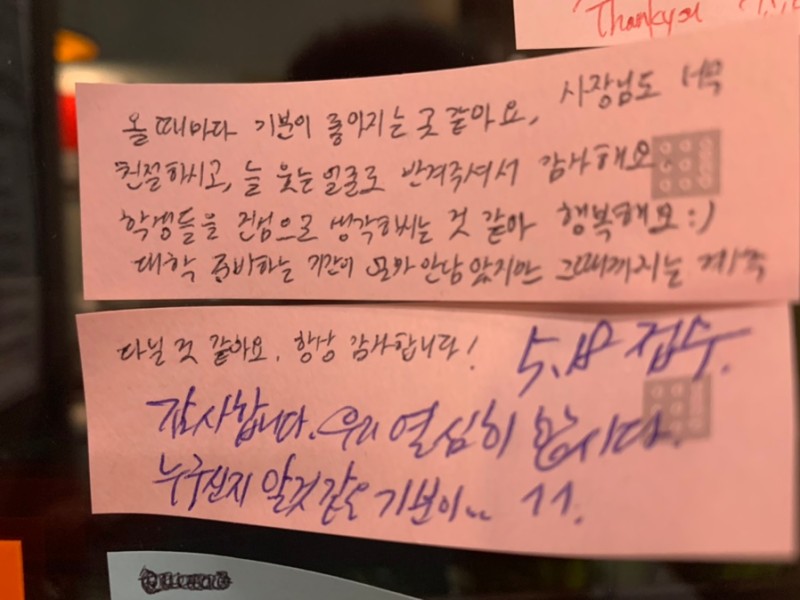 Thankyou
올 때마다 기분이 좋아지는 곳 같아요, 사장님도 너무
친절하시고, 늘 웃는 얼굴로 반겨주셔서 감사해요.
학생들을 진심으로 생각하시는 것 같아 행복해요 :)
대학 준비하는 기간이 얼마 안남았지만 그때까지는 계속
다닐 것 같아요. 항상 감사합니다!
5.18 접수.
감사합니다. 우리 열심히 합시다.
누구신지 알것 같은 기분이..